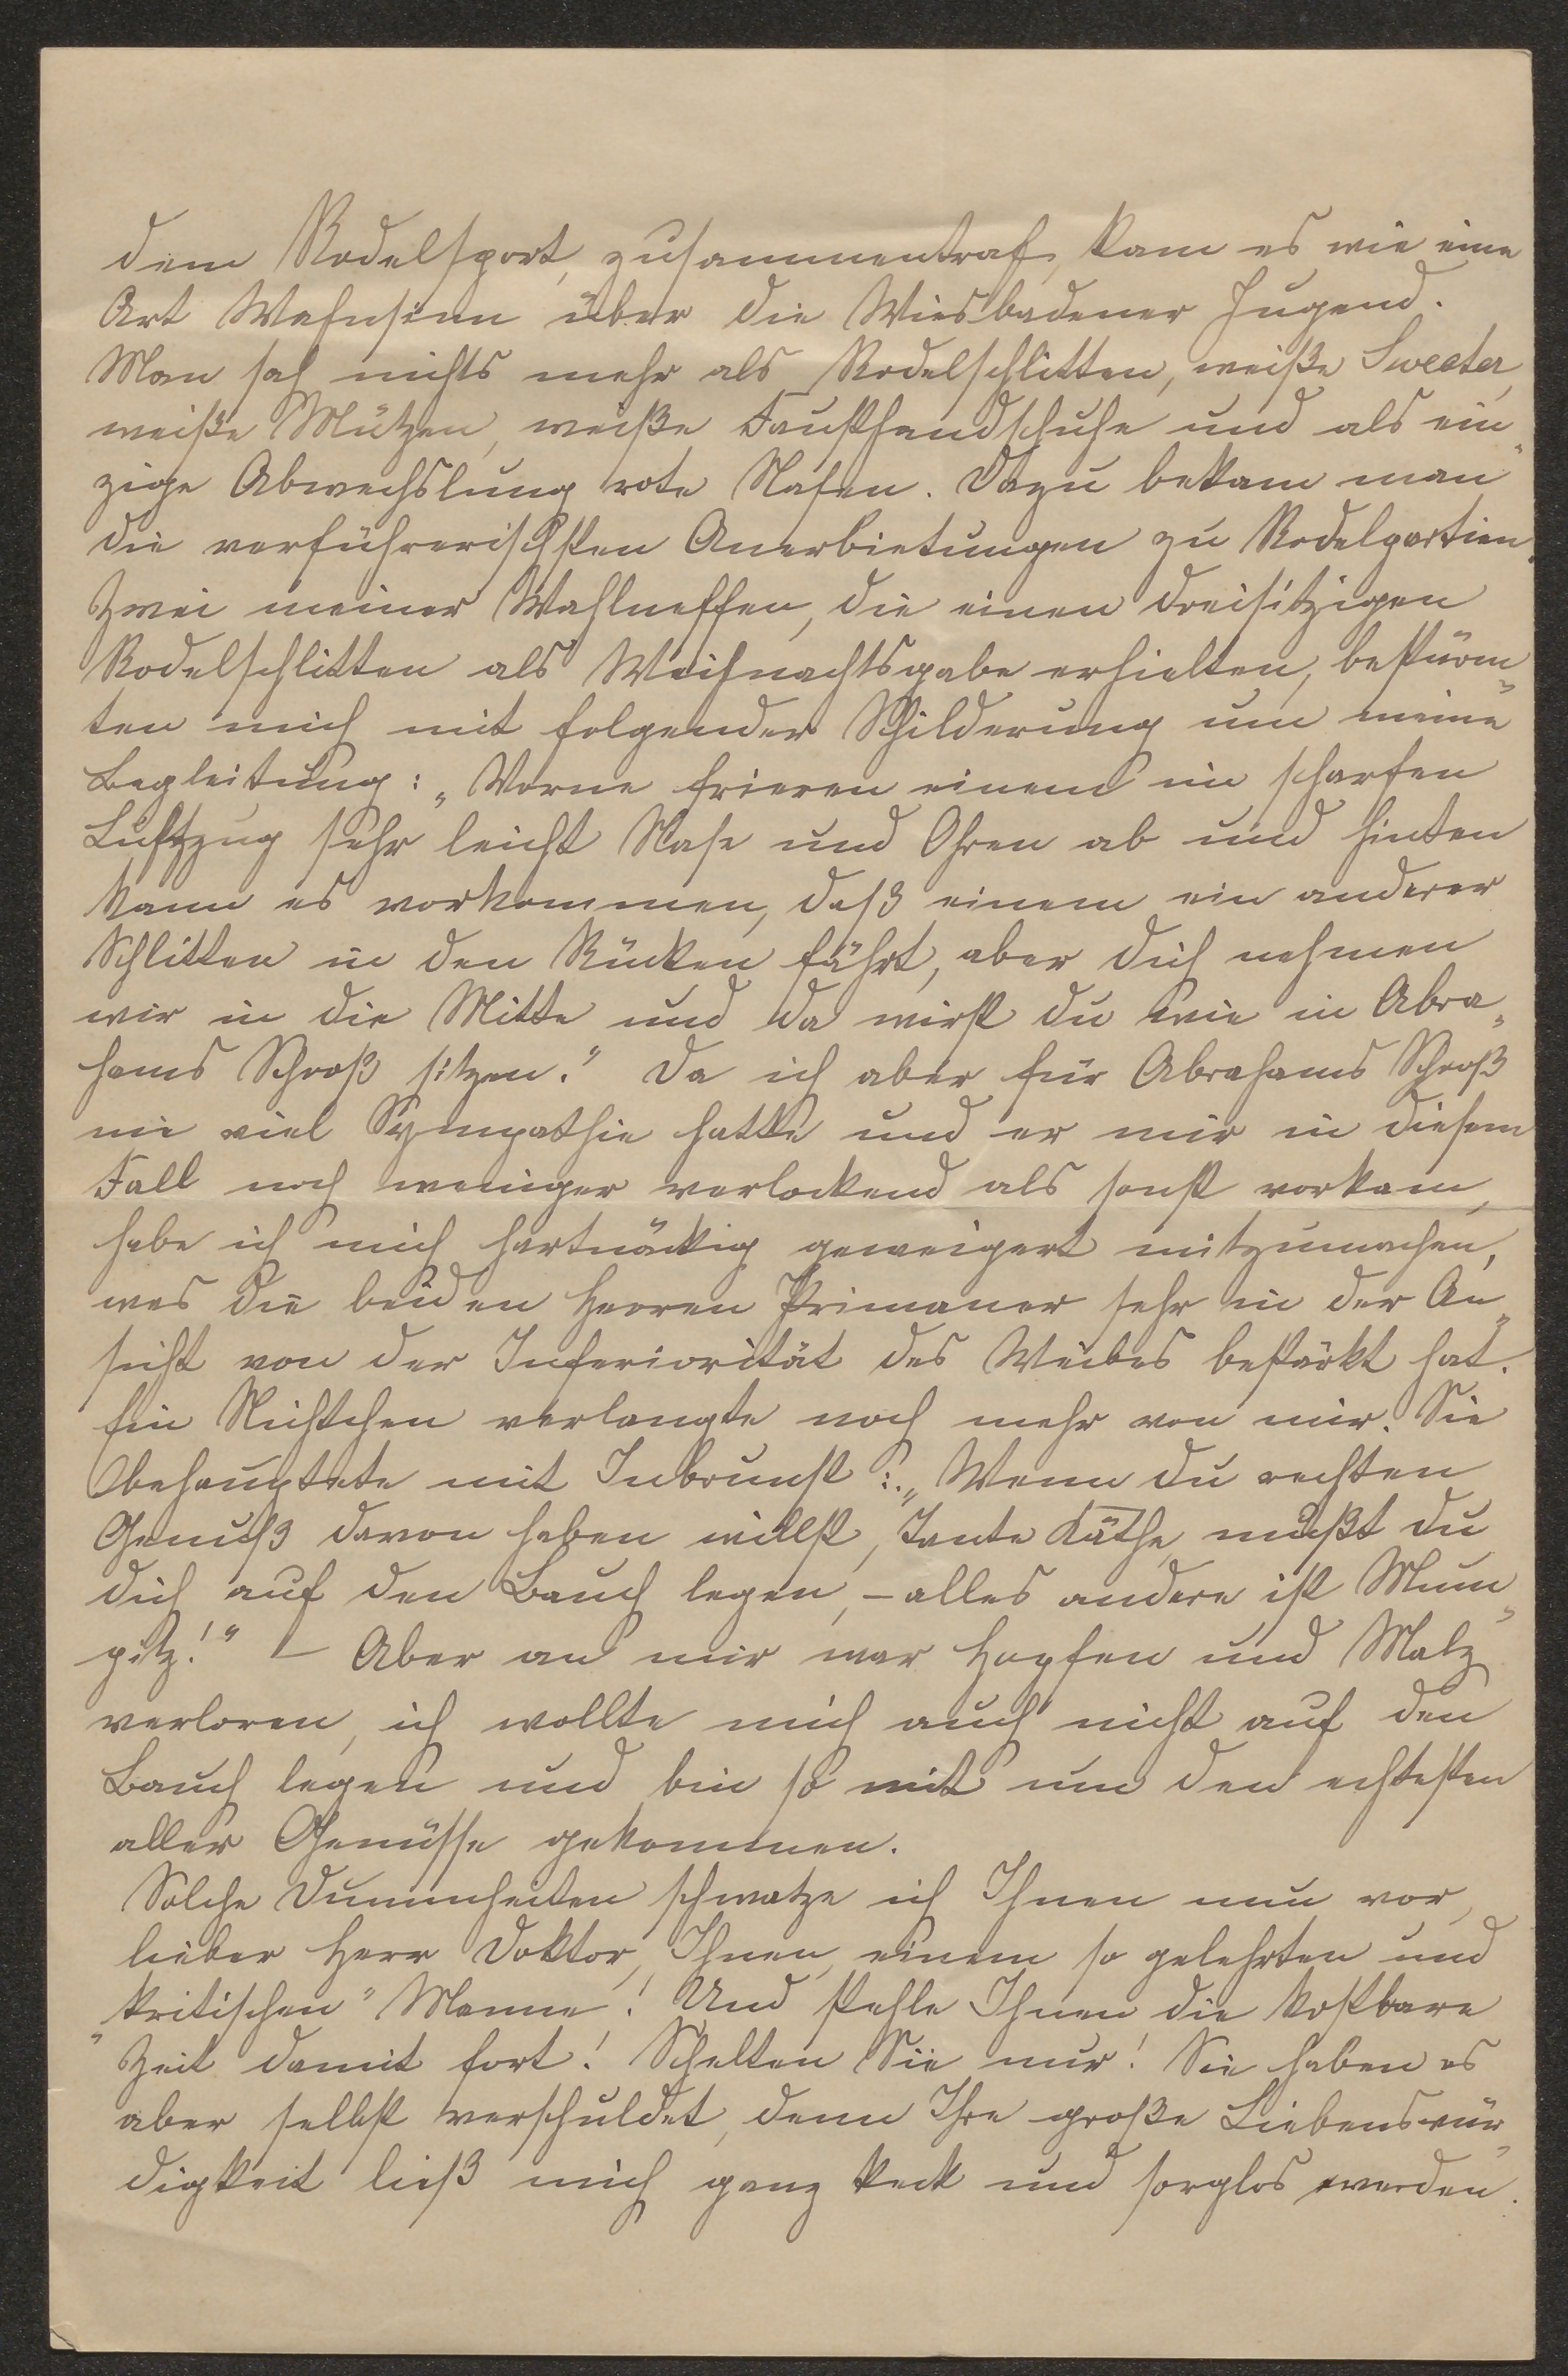 dem Rodelsport, zusammentraf, kam es wie eine
Art Wahnsinn über die Wiesbadener Jugend.
Man sah nichts mehr als Rodelschlitten, weiße Sweeter,
weiße Mützen, weiße Fausthandschuhe und als ein„
zige Abwechslung rote Nasen. Dazu bekam man
die verführerischsten Anerbietungen zu Rodelpartien.
Zwei meiner Wahlneffen, die einen dreisitzigen
Rodelschlitten als Weihnachtsgabe erhielten, bestürm„
ten mich mit folgender Schilderung um meine
Begleitung: „Vorne frieren einem im scharfen
Luftzug sehr leicht Nase und Ohren ab und hinten
kann es vorkommen, daß einem ein anderer
Schlitten in den Rücken fährt, aber dich nehmen
wir in die Mitte und da wirst du wie in Abra„
hams Schooß sitzen.“ Da ich aber für Abrahams Schooß
nie viel Sympathie hatte und er mir in diesem
Fall noch weniger verlockend als sonst vorkam,
habe ich mich hartnäckig geweigert mitzumachen,
was die beiden Herren Primaner sehr in der An„
sicht von der Inferiorität des Weibes bestärkt hat.
Ein Nichtchen verlangte noch mehr von mir. Sie
behauptete mit Inbrunst: „Wenn du rechten
Genuß davon haben willst, Tante Käthe, mußt du
dich auf den Bauch legen, – alles andere ist Mum„
pitz!“ – Aber an mir war Hopfen und Malz
verloren, ich wollte mich auch nicht auf den
Bauch legen und bin so mit um den echtesten
aller Genüsse gekommen.
Solche Dummheiten schwatze ich Ihnen nun vor,
lieber Herr Doktor, Ihnen, einem so gelehrten und
„kritischen“ Manne! Und stehle Ihnen die kostbare
Zeit damit fort! Schelten Sie nur! Sie haben es
aber selbst verschuldet, denn Ihre große Liebenswür„
digkeit ließ mich ganz keck und sorglos werden.